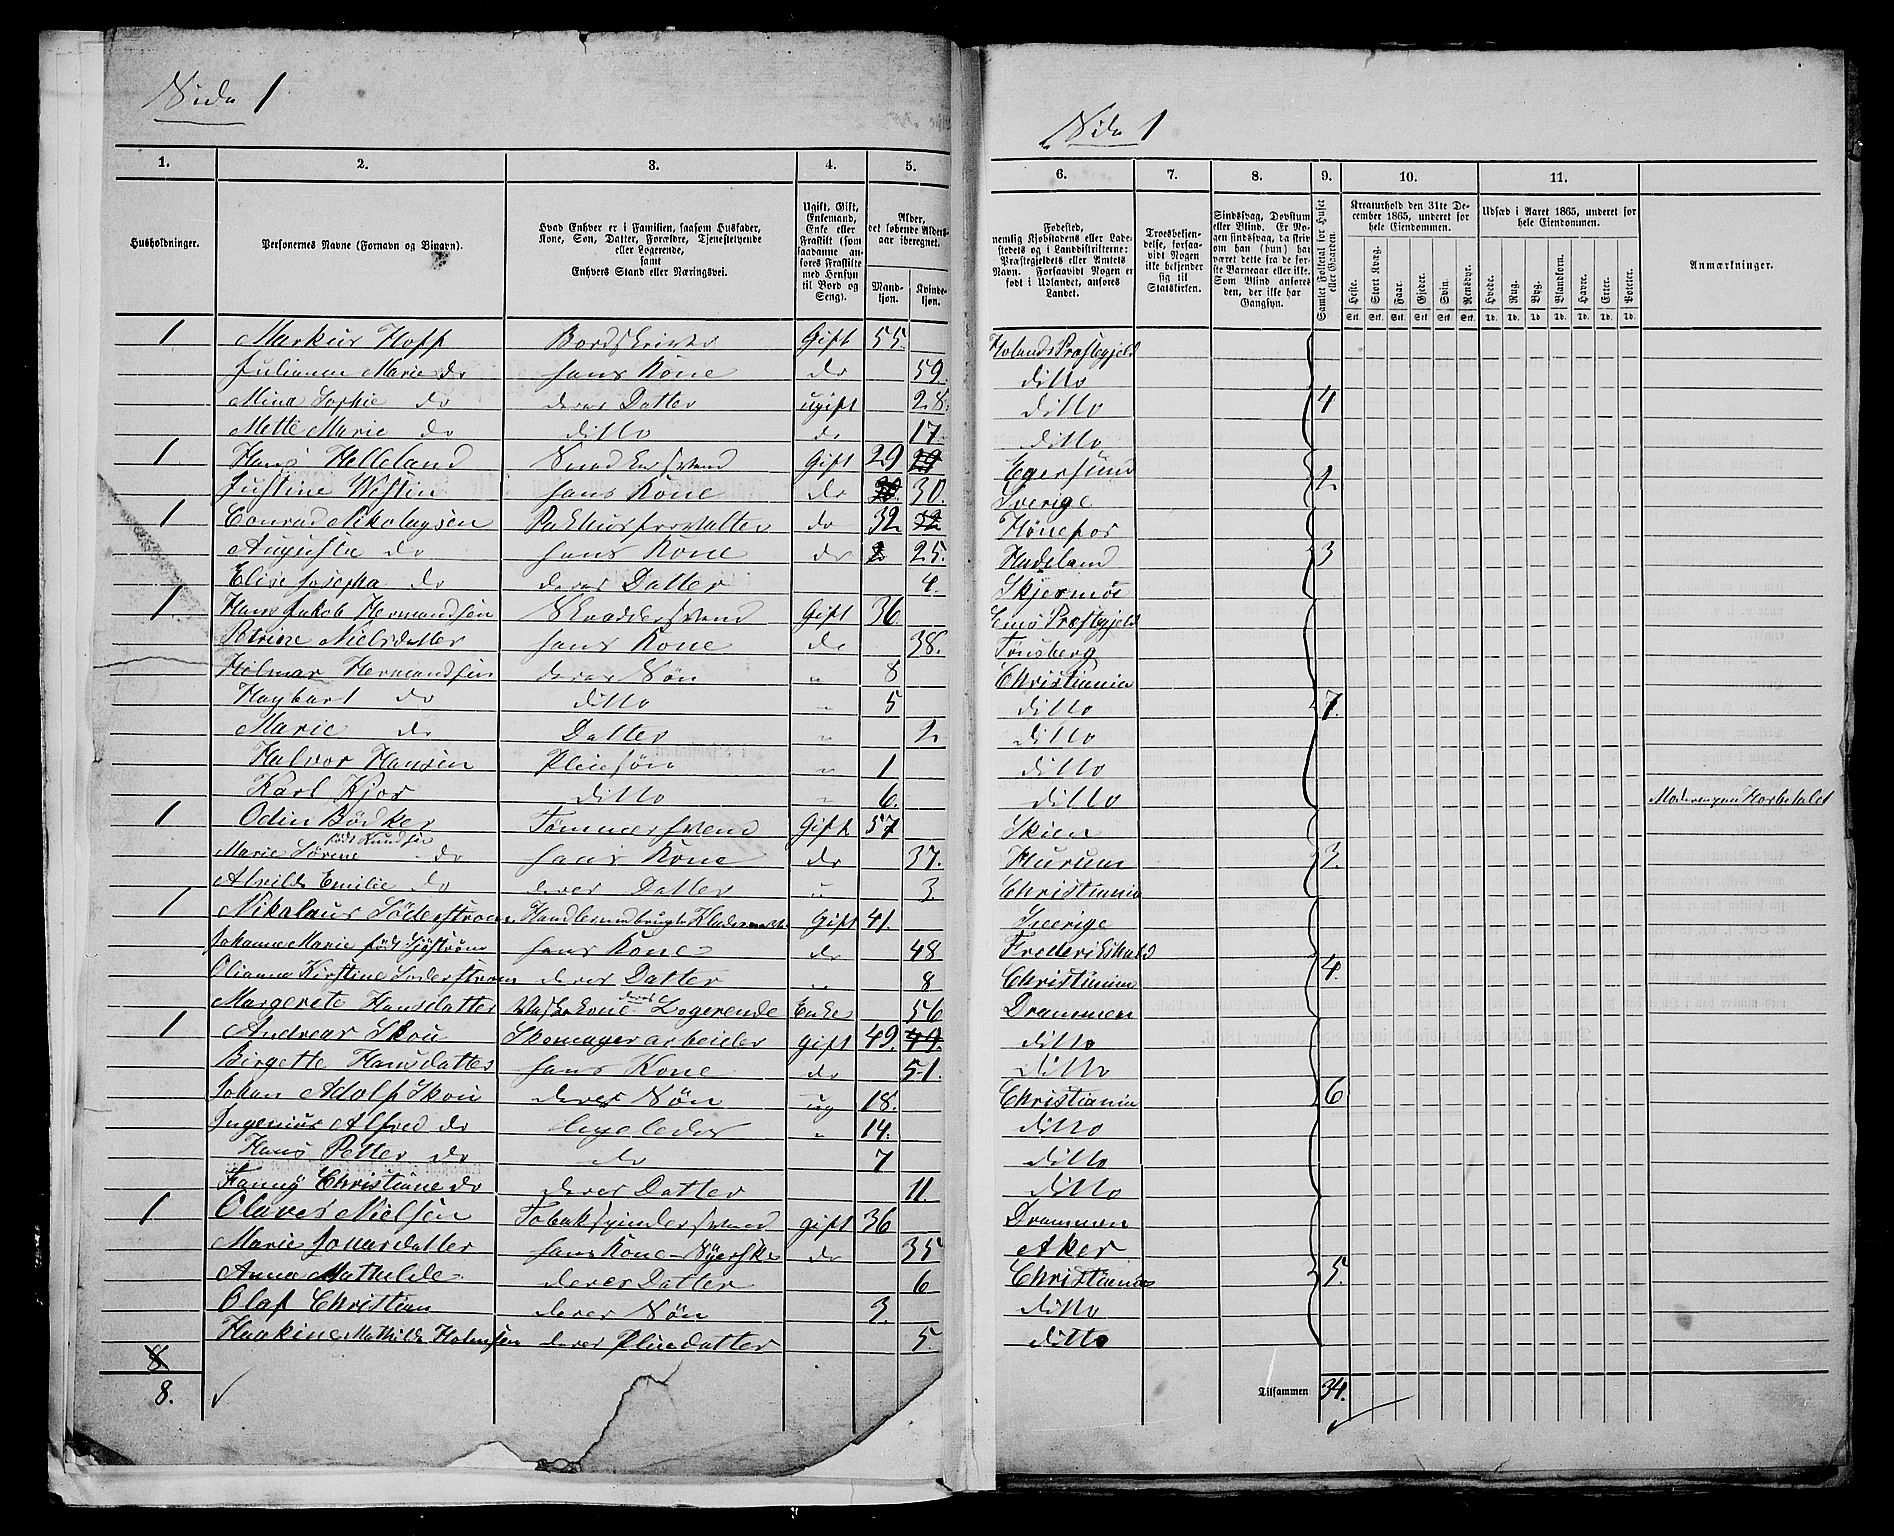 Side 1
1. 2. 3. 4. 5.
Husholdninger.
Personernes Navne (Fornavn og Binavn).
Hvad Enhver er i Familien, saasom Husfader, Kone, Søn, Datter, Forældre, Tjenestetyende eller Logerende, samt Enhvers Stand eller Næringsvei.
Ugift, Gift, Enkemand, Enke eller Fraskilt (som saadanne anføres Fraskilte med Hensyn til Bord og Seng).
Alder, det løbende Aldersaar iberegnet.
Mandkjøn. Kvindekjøn.
1 Markus Hoff Gift 55.
Juliane Marie do hans Kone do 59.
Mina Sophie do deres Datter ugift 28.
Mette Marie do ditto do 17.
1. Hans Helleland Snedkersvend Gift 29 29
Justine Westin hans Kone do 30.
1 Conrad Nikolaysen Pakhusforvalter do 32 32
Augusta do hans Kone do 2 25.
Elise Josepha do deres Datter 4.
1. Hans Jakob Hermandsen Skræddersvend Gift 36.
Petrine Nielsdatter hans Kone do 38.
Hilmar Hermandsen deres Søn " 8
Hagbart do ditto " 5
Marie do Datter " 2
Halvor Hansen Pleiesøn " 1
Karl Kjør ditto " 6.
1 Odin Bödker Tømmersvend Gift 57
Marie Sörine født Knudsen do hans Kone do 37.
Alvilde Emilie do deres Datter " 3.
1 Nikolaus Söderstrøm Gift 41.
Johanne Marie født Sjöstrøm hans Kone do 48
Olianna Kirstine Søderstrøm deres Datter " 8
Margerete Hansdatter Vaskekone deres Logerende Enke 56
1 Andreas Skou Skomagerarbeider gift 49. 49.
Birgette Hansdatter hans Kone do 51.
Johan Adolf Skou deres Søn ug 18.
Ingenius Alfred do ligeledes " 14.
Hans Petter do do 7
Fanny Christiane do deres Datter 11.
1 Olaves Nielsen Tobakspindersvend gift 36
Marie Jonasdatter hans Kone - Syerske do 35
Anna Mathilde deres Datter 6
Olaf Christian deres Søn 3.
Haakine Mathilde Holmsen deres Pleiedatter 5.
8
8.
Side 1
6. 7. 8. 9. 10. 11.
Fødested, nemlig Kjøbstadens eller Ladestedets og i Landdistrikterne: Præstegjeldets eller Amtets Navn. Forsaavidt Nogen er født i Udlandet, anføres Landet.
Troesbekjendelse, forsaavidt Nogen ikke bekjender sig til Statskirken.
Sindssvag, Døvstum eller Blind. Er Nogen sindssvag, da skrives om han (hun) har været dette fra de første Barneaar eller ikke. Som Blind anføres den, der ikke har Gangsyn.
Samlet Folketal for Huset eller Gaarden.
Kreaturhold den 31te December 1865, underet for hele Eiendommen.
Heste. Stort Kvæg. Faar. Gjeder. Svin. Rensdyr.
Stk. Stk. Stk. Stk. Stk. Stk.
Udsæd i Aaret 1865, underet for hele Eiendommen.
Hvede. Rug. Byg. Blandkorn. Havre. Erter. Poteter.
Td. Td. Td. Td. Td. Td. Td.
Anmærkninger.
Hølands Præstegjeld
ditto
ditto 4
ditto
Egersund 2
Sverige
Hønefos
Hadeland 3
Præstegjeld
Tønsberg
Christiania
ditto 7.
ditto
ditto
ditto
Skien
Hurum 3.
Christiania
Sverige
Frederikshald
Christiania 4.
Drammen
ditto
ditto
Christiania 6
ditto
ditto
ditto
Drammen
Aker
Christiania 5.
ditto
ditto
Tilsammen 34.